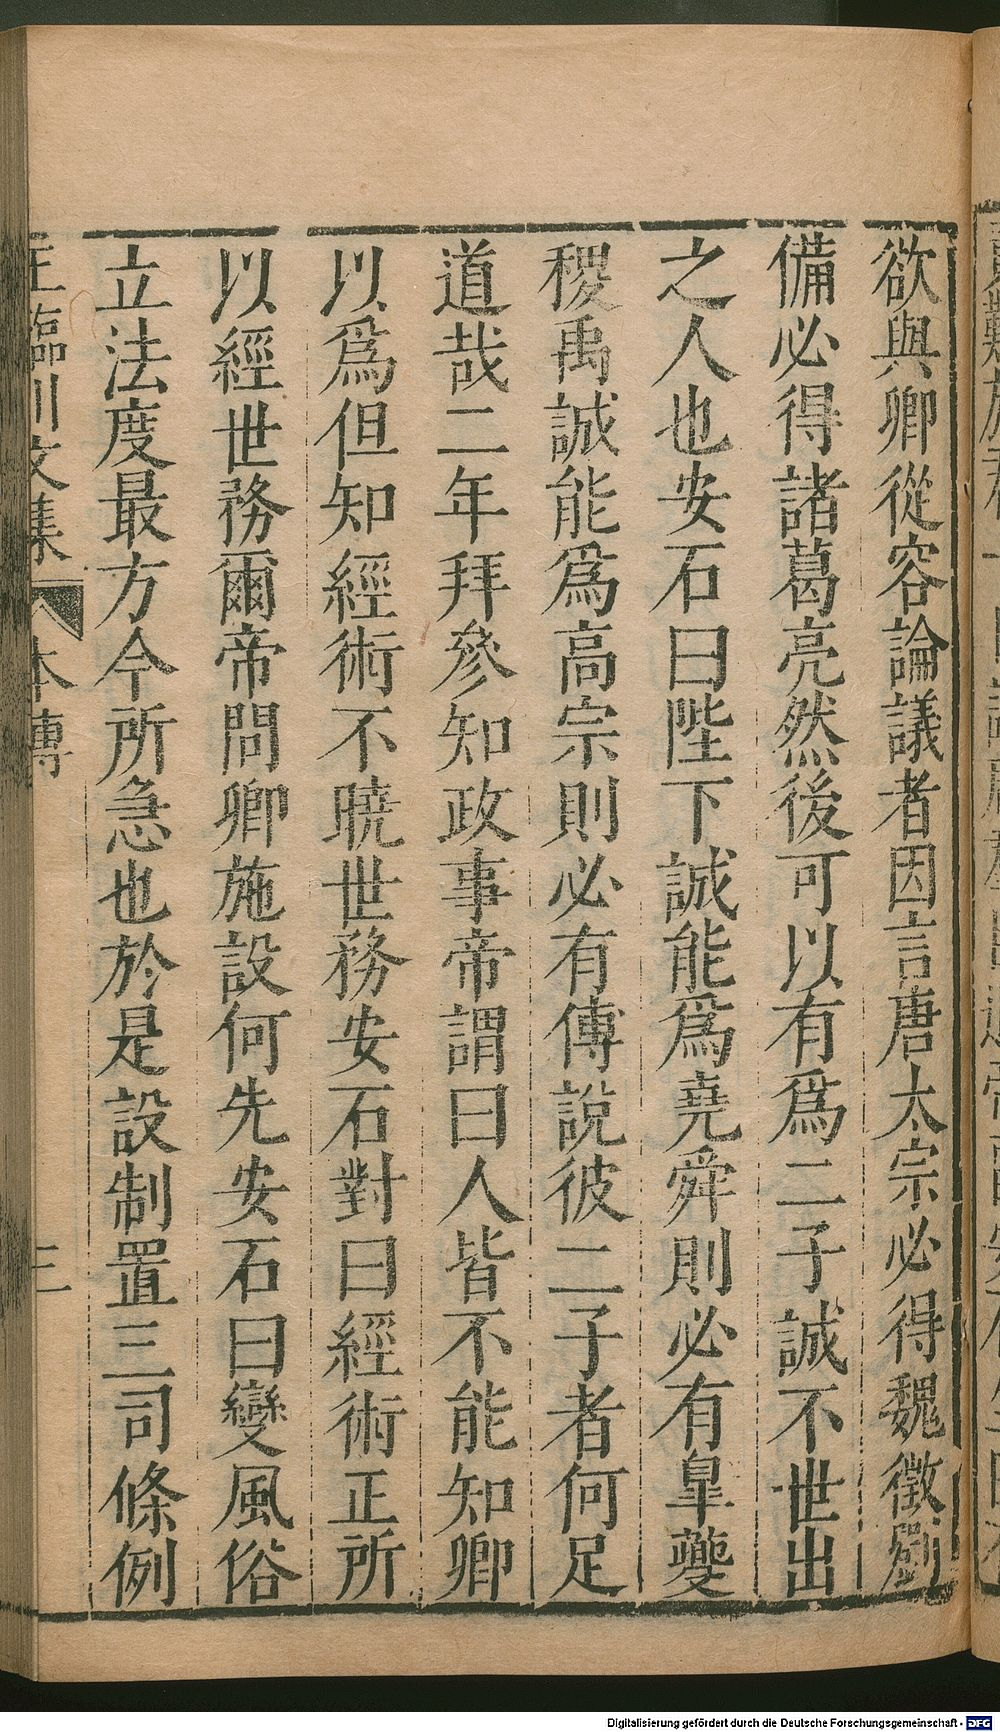 欲與卿從容論議者因言唐太宗必得魏徵劉
備必得諸葛亮然後可以有爲二子誠不世出
之人也安石曰陛下誠能爲堯舜則必有皐夔
稷禹誠能爲高宗則必有傅說彼二子者何足
道哉二年拜參知政事帝謂曰人皆不能知卿
以爲但知經術不曉世務安石對曰經術正所
以經世務爾帝問卿施設何先安石曰變風俗
立法度最方今所急也於是設制置三司條例
王臨川文集 本傳 三
Digitalisierung gefördert durch die Deutsche Forschungsgemeinschaft - DFG